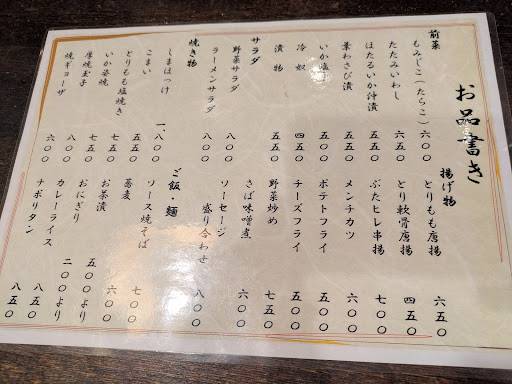 お品書き
前菜
もみじこ(たらこ) 六〇〇
たたみいわし 六五〇
ほたるいか沖漬 五五〇
葉わさび漬 五五〇
いか塩 五〇〇
冷奴 四五〇
漬物 五五〇
サラダ
野菜サラダ 八〇〇
ラーメンサラダ 八〇〇
焼き物
しまほっけ 一、八〇〇
こまい 五五〇
とりもも塩焼き 七五〇
いか姿焼 七五〇
厚焼玉子 八〇〇
焼ギョーザ 六〇〇
揚げ物
とりもも唐揚 六五〇
とり軟骨唐揚 四五〇
ぶたヒレ串揚 七〇〇
メンチカツ 六〇〇
ポテトフライ 五〇〇
チーズフライ 五〇〇
野菜炒め 七五〇
さば味噌煮 六〇〇
ソーセージ
盛り合わせ 八〇〇
ご飯・麺
ソース焼そば 七〇〇
蕎麦 六〇〇
お茶漬 五〇〇より
おにぎり 二〇〇より
カレーライス 八五〇
ナポリタン 八五〇